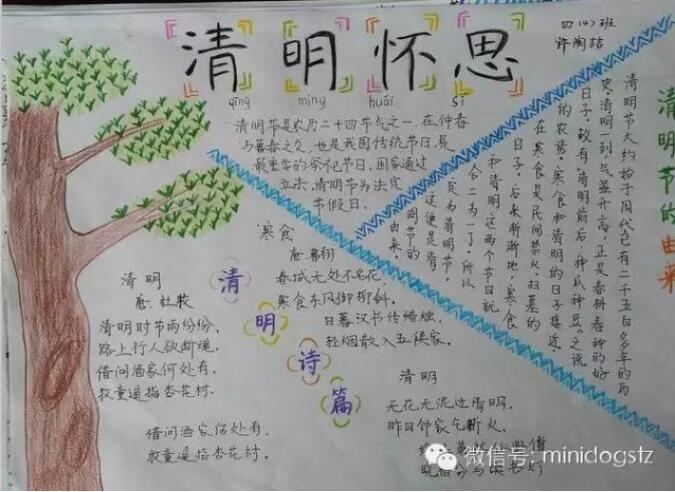 清明怀思
qīng míng huái sī
四(4)班
清明节是农历二十四节气之一,在仲春
与暮春之交,也是我国传统节日,是
最重要的祭祀节日,国家通过
立法,清明节为法定
节假日.
清明节的由来
清明节大约始于周代已有二千五百多年的历
史.清明一到,气温升高,正是春耕春种的好
日子,故有"清明前后,种瓜种豆"之说
的农谚.寒食和清明的日子接近,
在寒食是民间禁火,扫墓的
日子,后来渐渐地,寒食
和清明这两个节日就
合二为一了,所以
为清明节,
这便是清
明节的
由来.
清明诗篇
寒食
唐:韩翃
春城无处不飞花,
寒食东风御柳斜.
日暮汉书传蜡烛,
轻烟散入五侯家.
清明
唐:杜牧
清明时节雨纷纷,
路上行人欲断魂.
借问酒家何处有,
牧童遥指杏花村.
借问酒家何处有.
牧童遥指杏花村.
清明
无花无酒过清明.
昨日邻家乞新火.
微信号: minidogstz